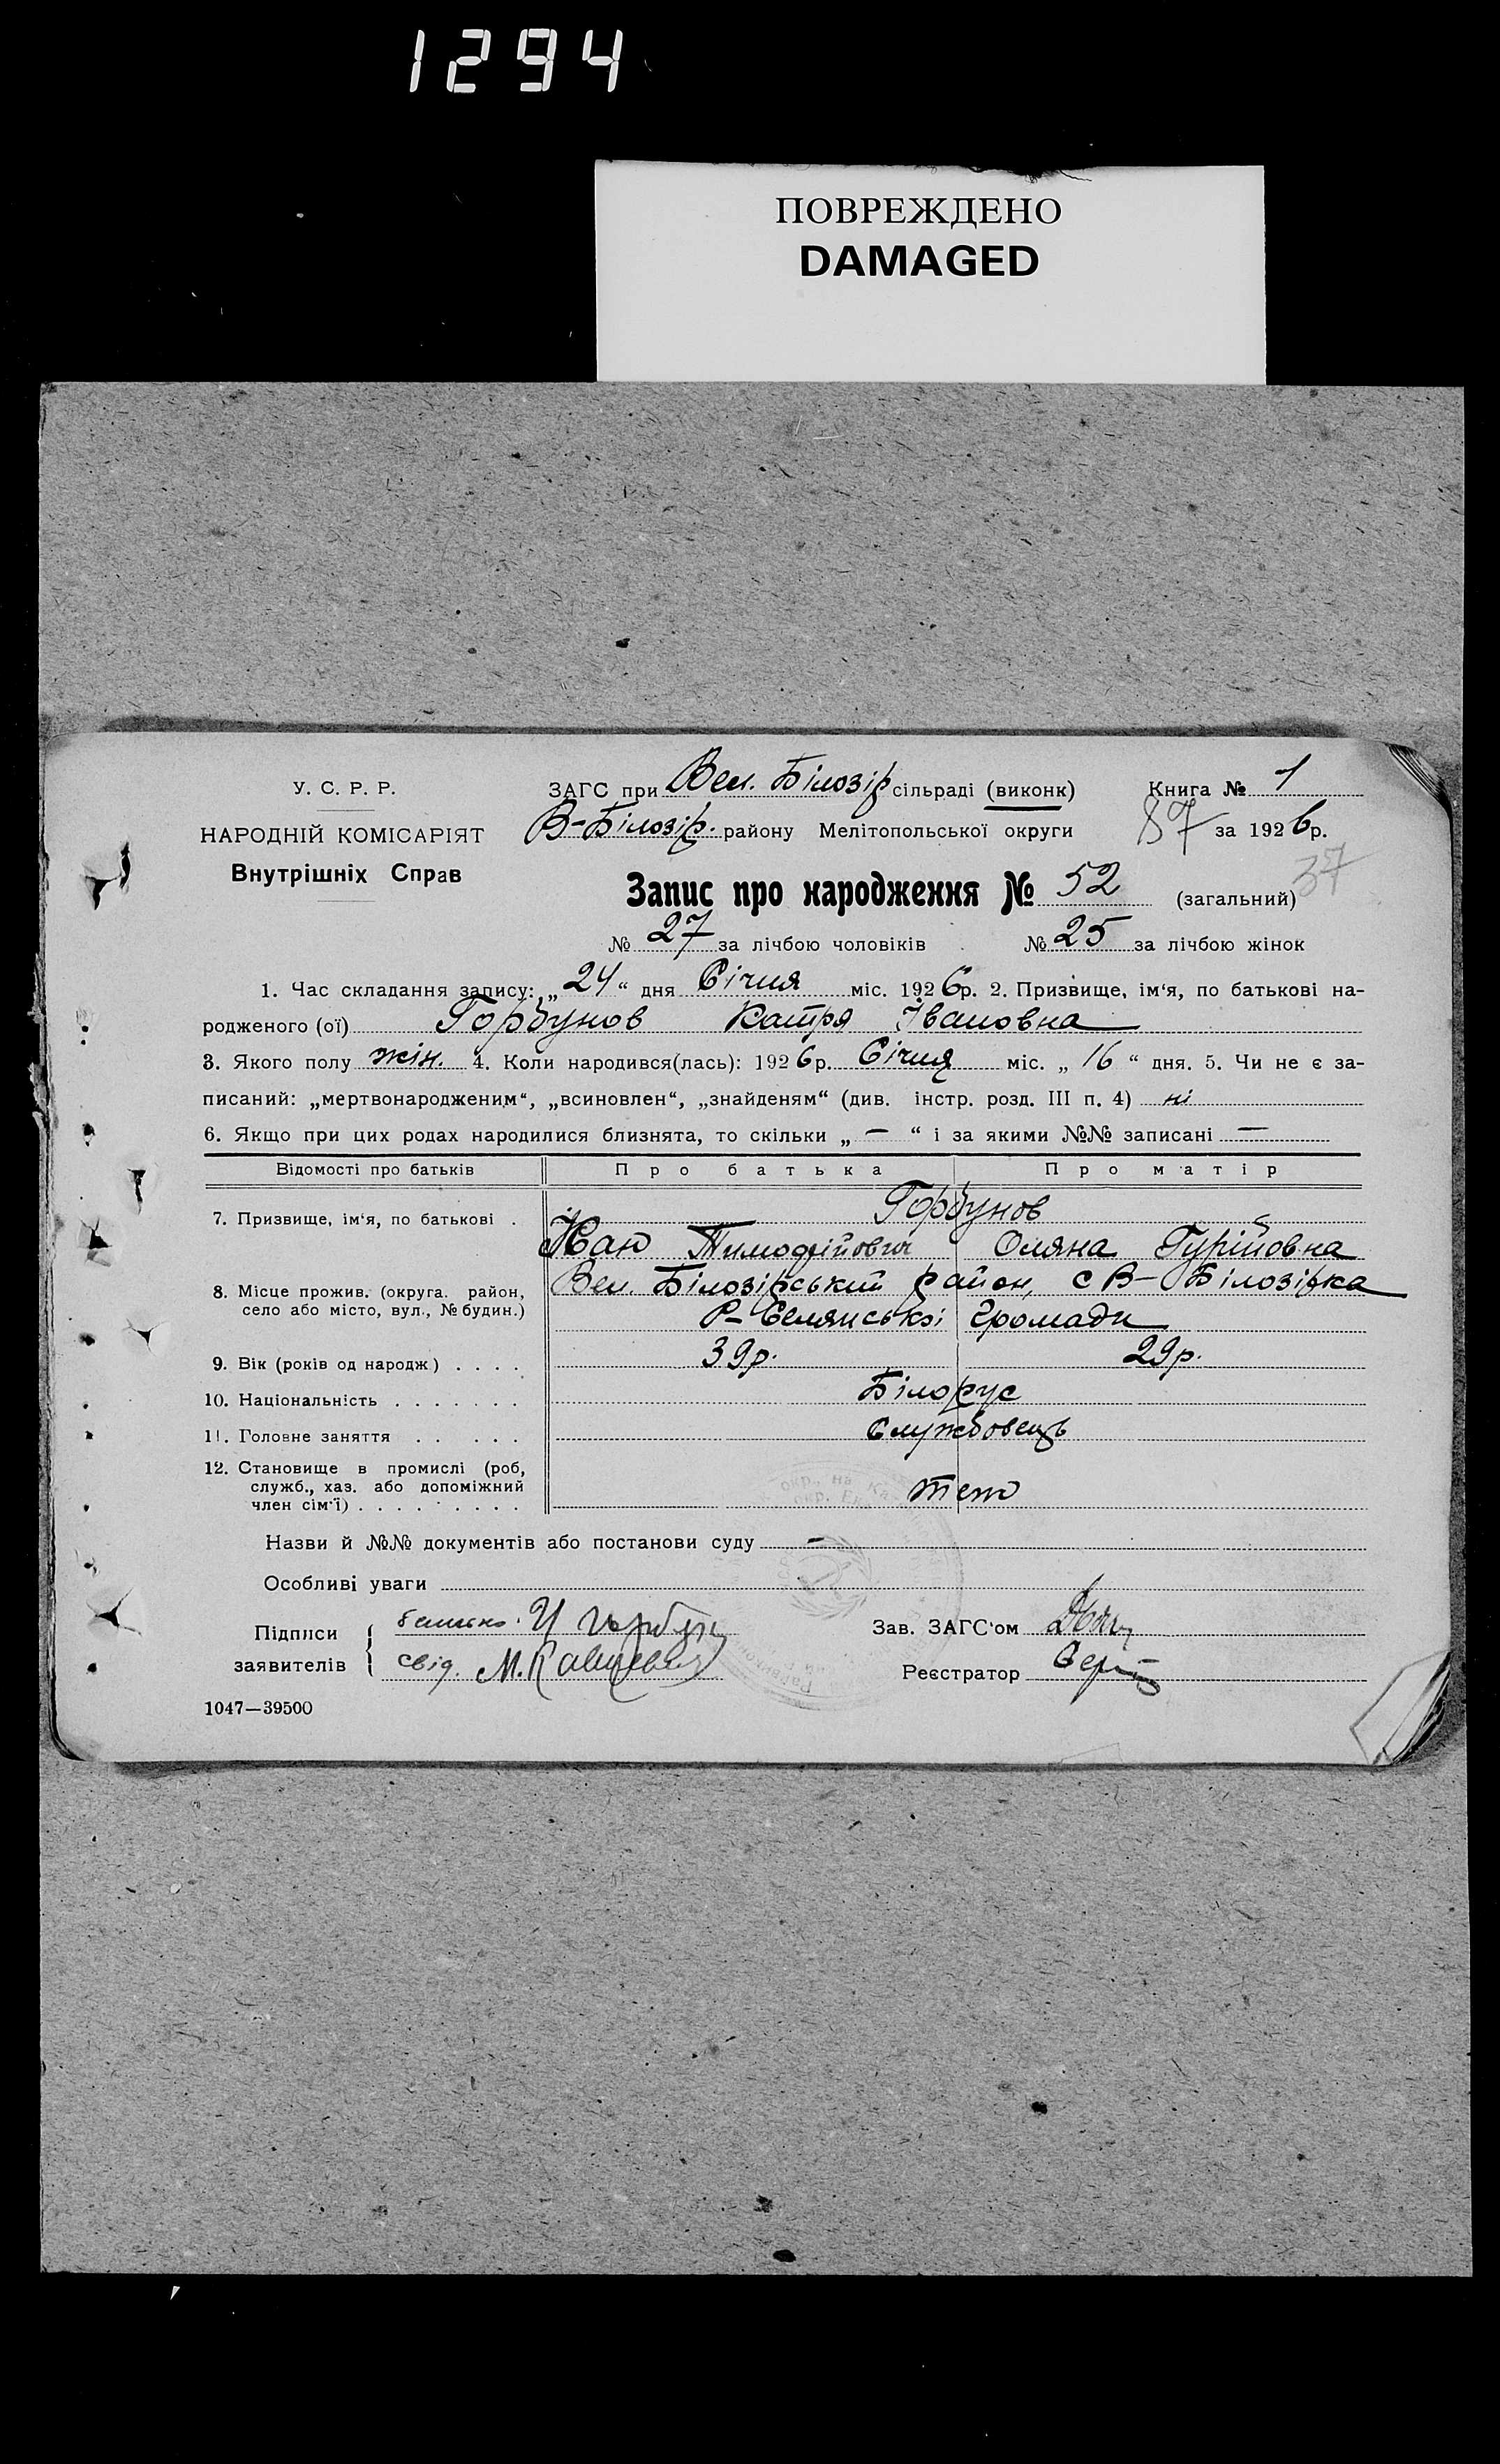 1294
ПОВРЕЖДЕНО
DAMAGED
У. С. Р. Р.
НАРОДНІЙ КОМІСАРІЯТ
Внутрішніх Справ
ЗАГС при Вел. Білозір сільраді (виконк) Книга № 1
В-Білозір. району Мелітопольської округи 87 за 1926р.
37
Запис про народження № 52 (загальний)
№ 27 за лічбою чоловіків № 25 за лічбою жінок
1. Час складання запису: „24“ дня Січня міс. 1926р. 2. Призвище, ім‘я, по батькові на-
родженого (ої) Горбунов Катря Івановна
3. Якого полу жін. 4. Коли народився(лась): 1926р. Січня міс. „ 16 “ дня. 5. Чи не є за-
писаний: „мертвонародженим“, „всиновлен“, „знайденям“ (див. інстр. розд. III п. 4) ні
6. Якщо при цих родах народилися близнята, то скільки „ — “ і за якими №№ записані —
Відомості про батьків Про батька Про матір
7. Призвище, ім‘я, по батькові . Горбунов
Іван Тимофійович Оляна Гурійовна
8. Місце прожив. (округа. район, село або місто, вул., № будин.) Вел. Білозірський район, с В-Білозірка
Р-Селянської громади
9. Вік (років од народж) . . . . 39р. 29р.
10. Національність . . . . . . . Білорус
11. Головне заняття . . . . . Службовець
12. Становище в промислі (роб,
служб., хаз. або допоміжний
член сім‘ї) . . . . . . . . . теж
Назви й №№ документів або постанови суду —
Особливі уваги
Підписи батько. И Горбун Зав. ЗАГС'ом
заявителів свід. М. Реєстратор
1047—39500